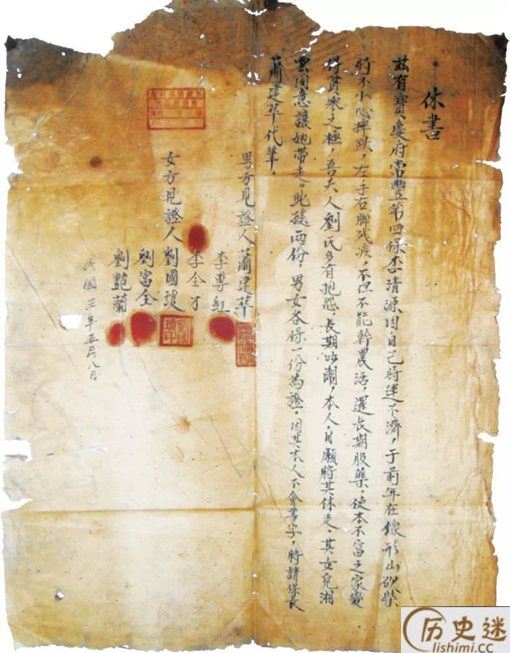 休書
茲有寶慶府常豐第四保李清源因自己時運不濟，于前年在像形山砍柴
時不小心摔跌，左手右脚残疾，不但不能幹農活，還長期服藥，使本不富之家變
得貧寒之極，吾夫人劉氏多有抱怨，長期吵鬧，本人自願將其休走，其女兒湘
雲同意讓她帶走。此據兩份，男女各保一份為憑，因其本人不會寫字，特請保長
蕭建華代筆，
男方見證人蕭建華
李專紅
李全才
女方見證人劉國
劉富全
劉艷蘭
民國三年五月八日
历史迷
lishimi.cc